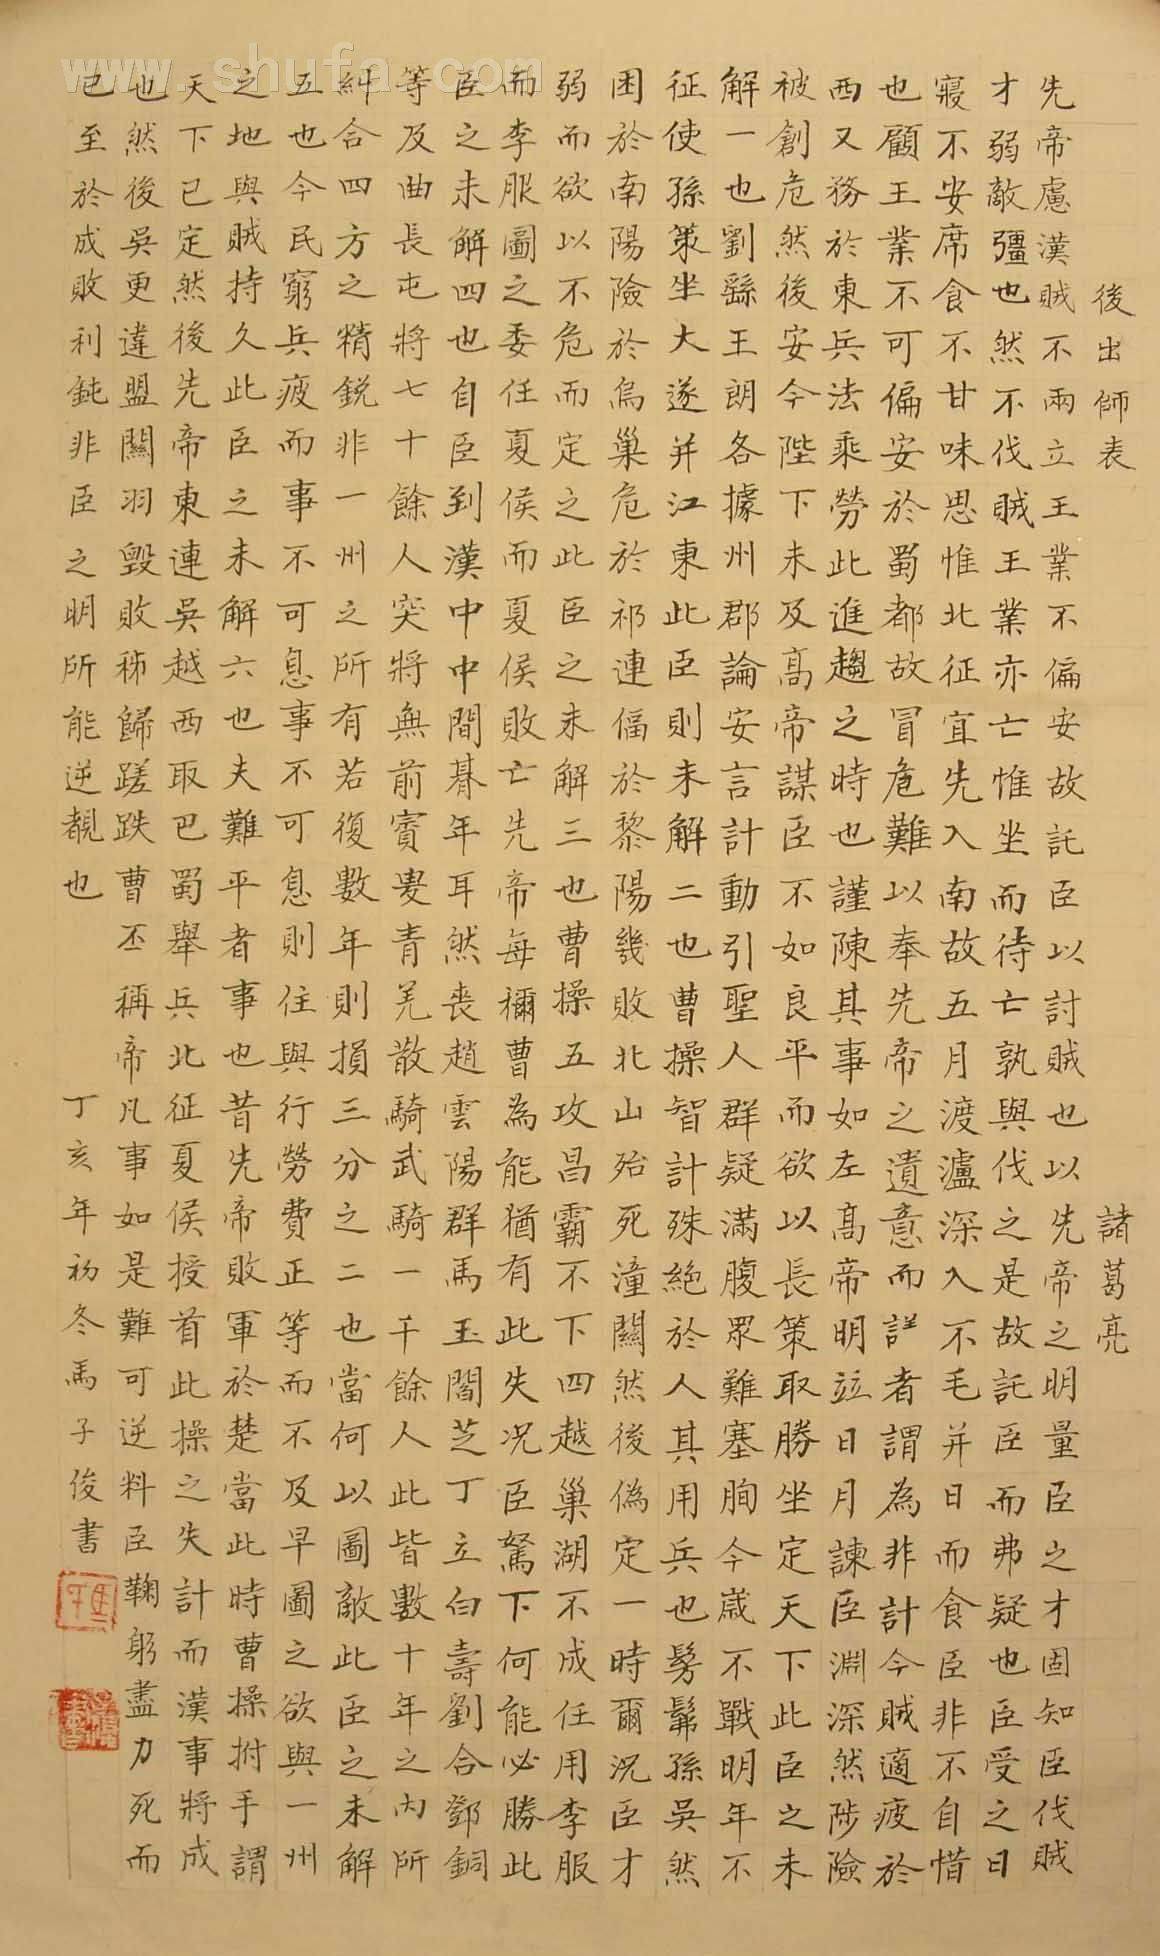 後出師表 諸葛亮
先帝慮漢賊不兩立王業不偏安故託臣以討賊也以先帝之明量臣之才固知臣伐賊
才弱敵彊也然不伐賊王業亦亡惟坐而待亡孰與伐之是故託臣而弗疑也臣受之日
寢不安席食不甘味思惟北征宜先入南故五月渡瀘深入不毛并日而食臣非不自惜
也顧王業不可偏安於蜀都故冒危難以奉先帝之遺意而詳者謂為非計今賊適疲於
西又務於東兵法乘勞此進趨之時也謹陳其事如左高帝明竝日月諫臣淵深然陟險
被創危然後安今陛下未及高帝謀臣不如良平而欲以長策取勝坐定天下此臣之未
解一也劉繇王朗各據州郡論安言計動引聖人群疑滿腹眾難塞胸今歲不戰明年不
征使孫策坐大遂并江東此臣則未解二也曹操智計殊絕於人其用兵也髣髴孫吳然
困於南陽險於烏巢危於祁連偪於黎陽幾敗北山殆死潼關然後偽定一時爾況臣才
弱而欲以不危而定之此臣之未解三也曹操五攻昌霸不下四越巢湖不成任用李服
而李服圖之委任夏侯而夏侯敗亡先帝每稱曹為能猶有此失况臣駑下何能必勝此
臣之未解四也自臣到漢中中間朞年耳然喪趙雲陽群馬玉閻芝丁立白壽劉合鄧銅
等及曲長屯將七十餘人突將無前賨叟青羌散騎武騎一千餘人此皆數十年之内所
糾合四方之精銳非一州之所有若復數年則損三分之二也當何以圖敵此臣之未解
五也今民窮兵疲而事不可息事不可息則住與行勞費正等而不及早圖之欲與一州
之地與賊持久此臣之未解六也夫難平者事也昔先帝敗軍於楚當此時曹操拊手謂
天下已定然後先帝東連吳越西取巴蜀舉兵北征夏侯授首此操之失計而漢事將成
也然後吳更違盟關羽毀敗秭歸蹉跌曹丕稱帝凡事如是難可逆料臣鞠躬盡力死而
已至於成敗利鈍非臣之明所能逆覩也 丁亥年初冬馬子俊書
www.shufa.com